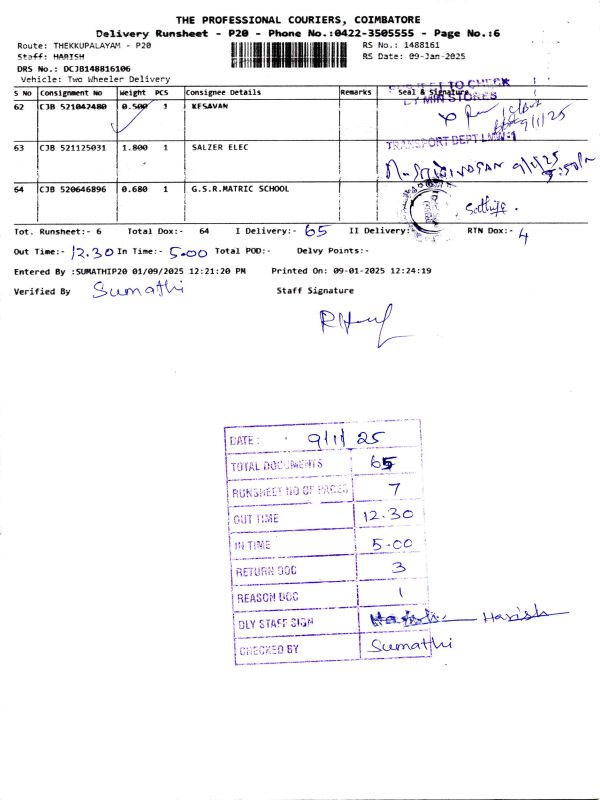 THE PROFESSIONAL COURIERS, COIMBATORE
Delivery Runsheet - P20 - Phone No.:0422-3505555 - Page No.:6
Route: THEKKUPALAYAM - P20 RS No.: 1488161
Staff: HARISH RS Date: 09-Jan-2025
DRS No.: DCJB148816106
Vehicle: Two Wheeler Delivery
S No Consignment No Weight PCS Consignee Details Remarks Seal & Signature
62 CJB 521042480 0.500 1 KESAVAN
TO CHECK
STORES
9/1/25
63 CJB 521125031 1.800 1 SALZER ELEC
TRANSPORT DEPT
9/1/25
64 CJB 520646896 0.680 1 G.S.R.MATRIC SCHOOL
Tot. Runsheet:- 6 Total Dox:- 64 I Delivery:- 65 II Delivery:- RTN Dox:- 4
Out Time:- 12.30 In Time:- 5.00 Total POD:- Delvy Points:-
Entered By :SUMATHIP20 01/09/2025 12:21:20 PM Printed On: 09-01-2025 12:24:19
Verified By Sumathi Staff Signature
DATE : 9/1/25
TOTAL DOCUMENTS 65
RUNSHEET NO OF PAGES 7
OUT TIME 12.30
IN TIME 5-00
RETURN DOC 3
REASON DOC 1
DLY STAFF SIGN Harish
CHECKED BY Sumathi